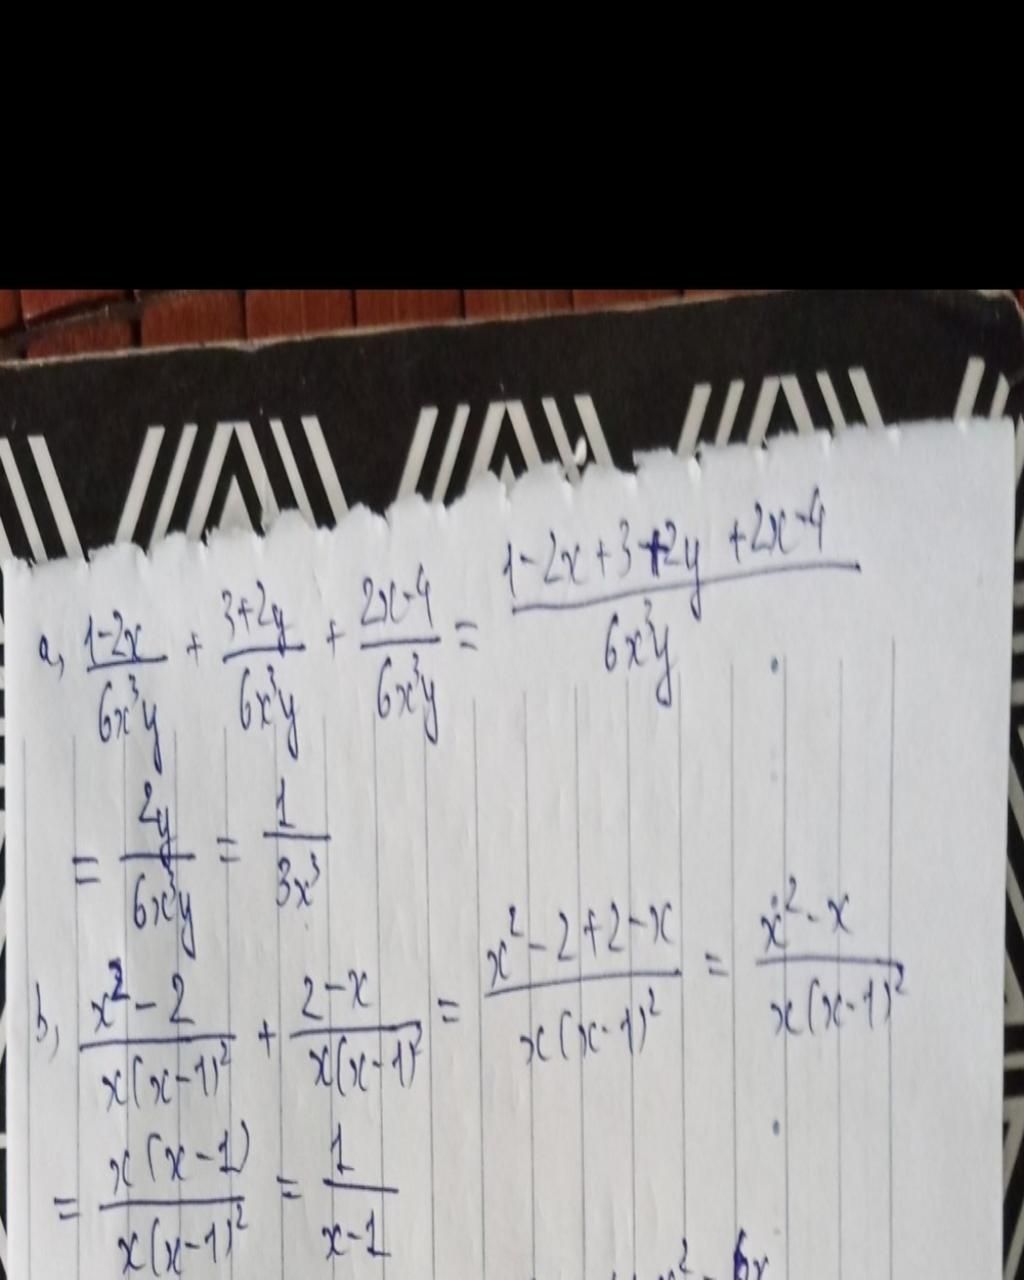 a, (1-2x)/(6x³y) + (3+2y)/(6x³y) + (2x-4)/(6x³y) = (1-2x+3+2y+2x-4)/(6x³y)
= 2y/(6x³y) = 1/(3x³)
b, (x²-2)/(x(x-1)²) + (2-x)/(x(x-1)²) = (x²-2+2-x)/(x(x-1)²) = (x²-x)/(x(x-1)²)
= (x(x-1))/(x(x-1)²) = 1/(x-1)